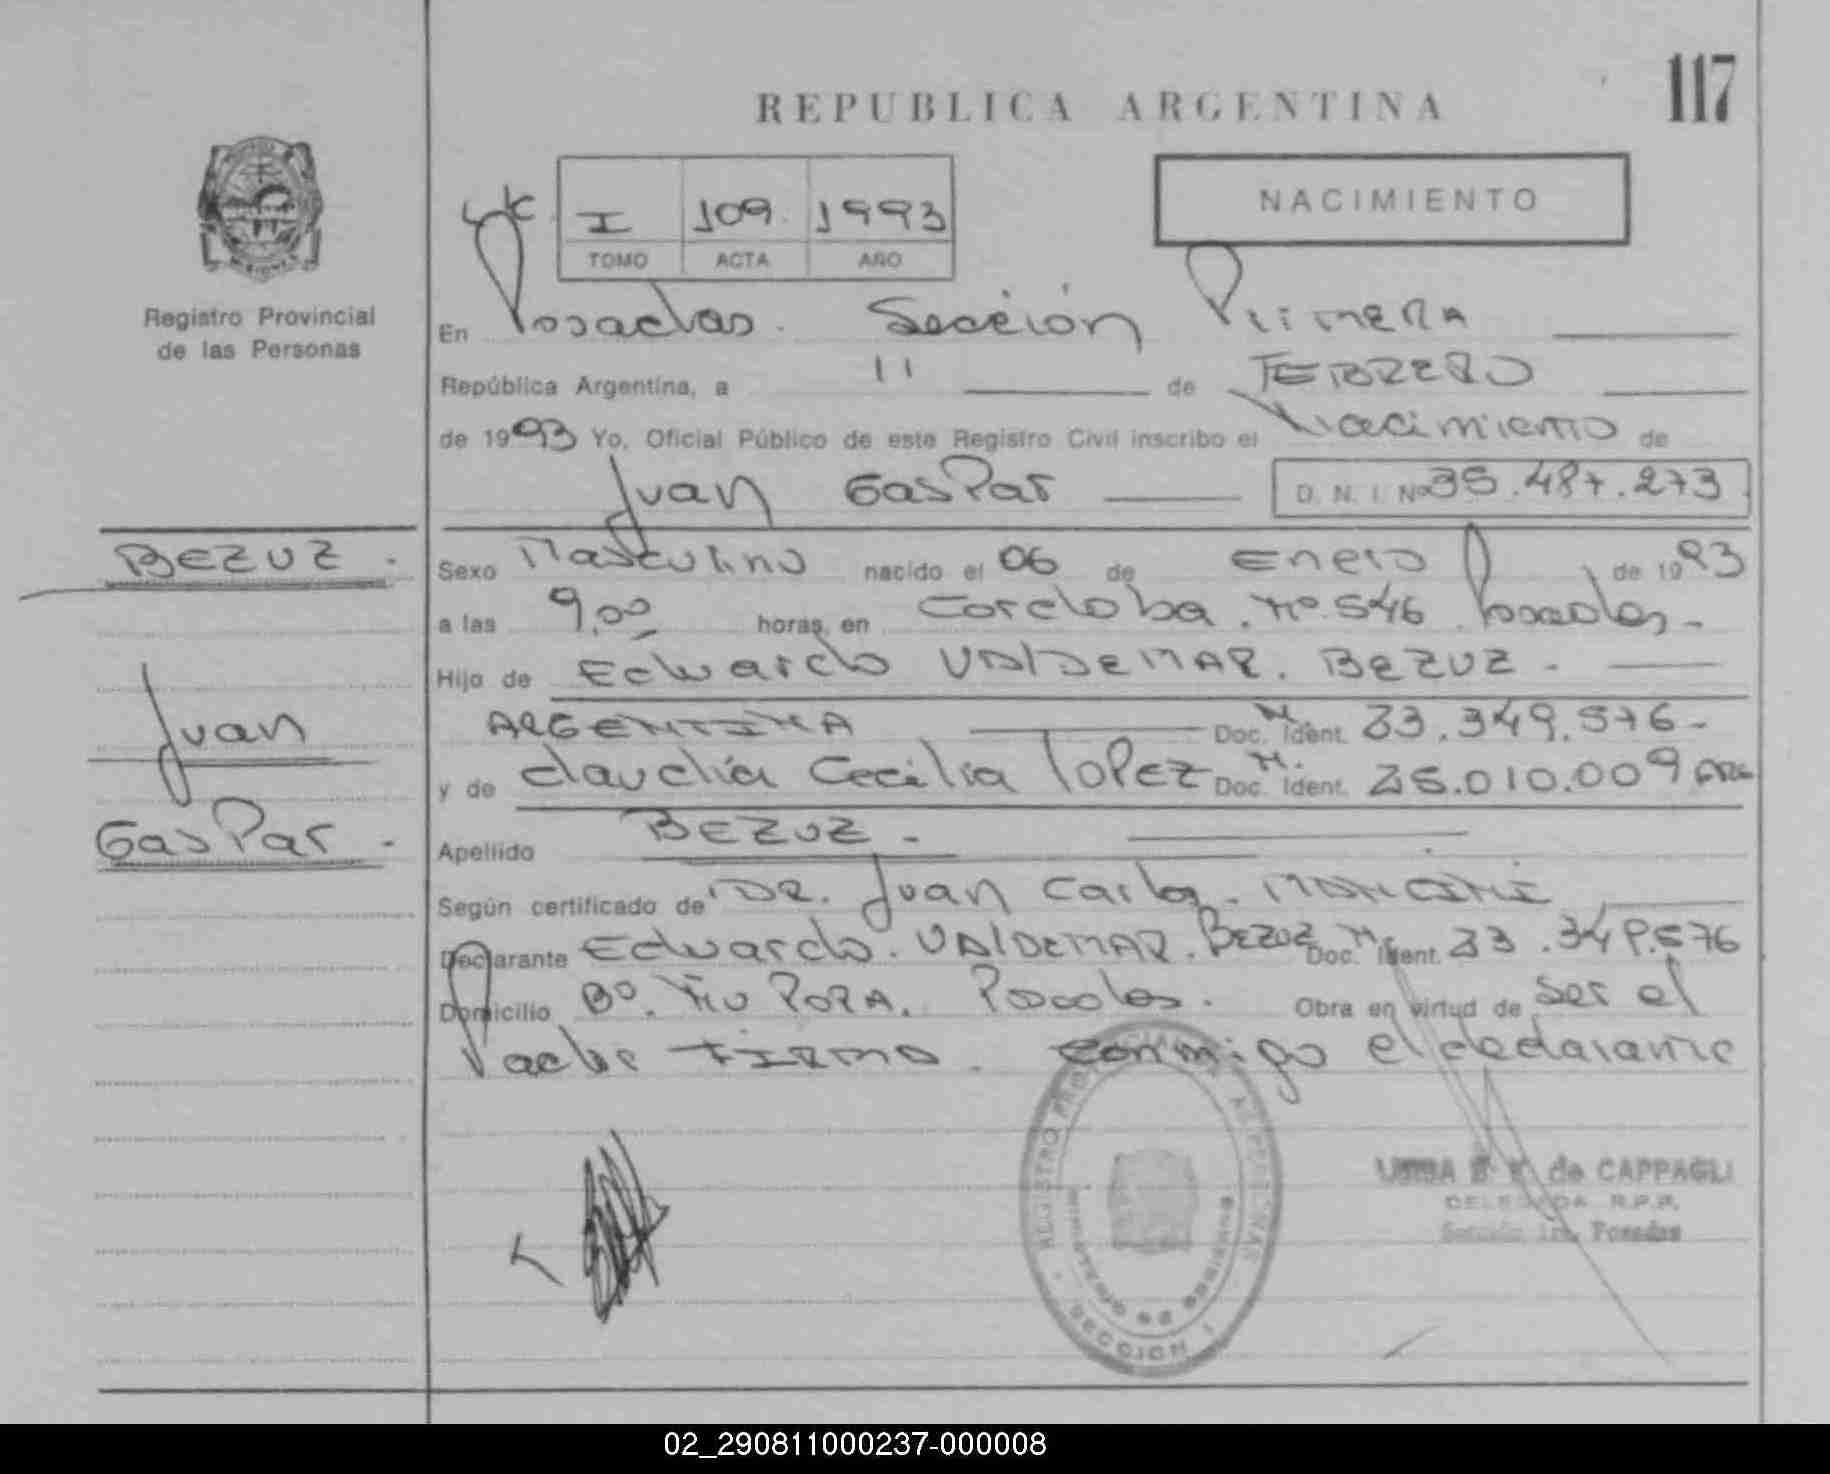 117
REPUBLICA ARGENTINA
NACIMIENTO
I 109 1993
TOMO ACTA AÑO
Registro Provincial
de las Personas
En Posadas. Sección Primera
República Argentina, a 11 de FEBRERO
de 1993 Yo, Oficial Público de este Registro Civil inscribo el Nacimiento de
Juan Gaspar D. N. I. Nº 35.487.273
BEZUZ.
Sexo Masculino nacido el 06 de Enero de 1993
a las 9,00 horas, en Cordoba. Nº 546 Posadas.
Hijo de Eduardo VALDEMAR. BEZUZ.
ARGENTINA Doc. Ident. 23.349.576
Juan
y de Claudia Cecilia Lopez Doc. Ident. 25.010.009 ARG
Gaspar.
Apellido BEZUZ.
Según certificado de DR. Juan Carlos. MANCINI
Declarante Eduardo. VALDEMAR. BEZUZ Doc. Ident. 23.349.576
Domicilio Bº. Posadas. Obra en virtud de ser el
Padre FIRMA. conmigo el declarante
REGISTRO PROVINCIAL DE LAS PERSONAS
MINISTERIO DE GOBIERNO
SECCION I
de CAPPAGLI
DELEGADA R.P.P.
Sección 1ra. Posadas
02_290811000237-000008